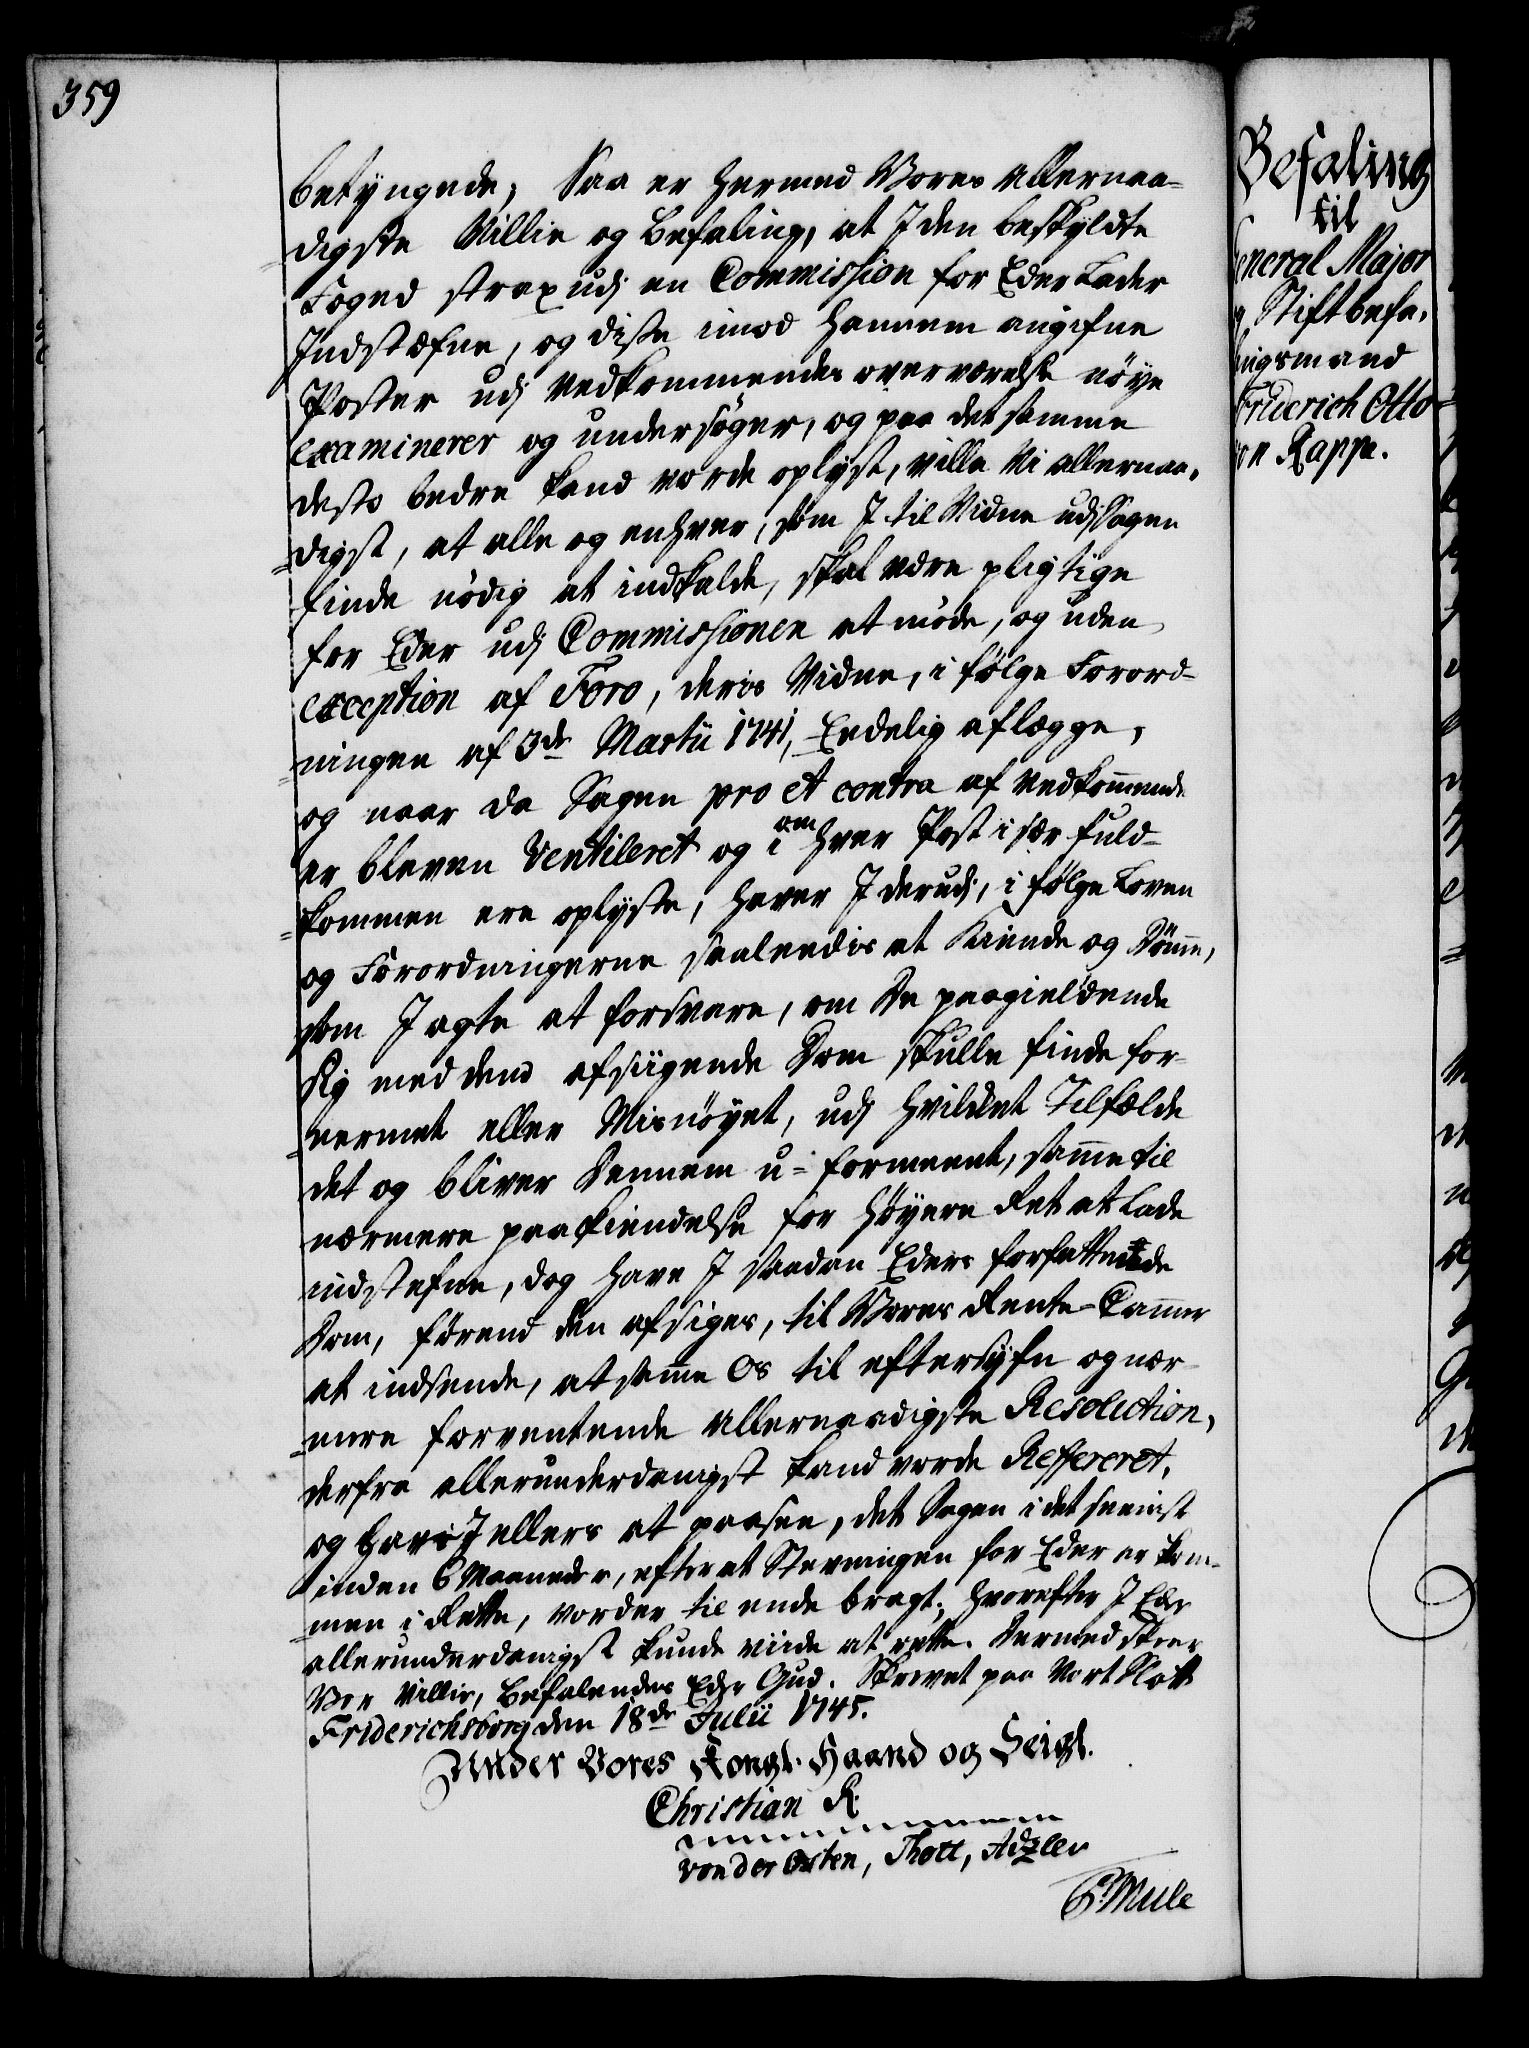 359
betyngede; Saa er hermed Vores allernaa-
digste Villie og Befaling, at I den beskyldte
Foged strax udj en Commission for Eder Lader
Indstæfne, og diße imod hannem angifne
Poster udj vedkommendes overværelse nöye
examinerer og undersöger, og paa det samme
desto bedre kand vorde oplyst, ville Vi allernaa-
digst, at alle og enhver, som I til Vidne udj Sagen
finde nödig at indkalde, skal være pligtige
for Eder udj Commissionen at möde, og uden
exception af Foro, deris Vidne, i fölge Forord-
ningen af 3de Martii 1741, Endelig aflægge,
og naar da Sagen pro et contra af vedkommende
er bleven Ventileret og i om hver Post i sær fuld-
kommen ere oplyste, haver I derudj, i fölge Loven
og Forordningerne saaleedis at kiende og Dömme,
som I agte at forsvare, om De paagieldende
sig med dend afsigende Dom skulle finde for-
nermet eller Misnöyet, udj hvilket Tilfælde
det og bliver Dennem u-formeent, samme til
nærmere paakiendelse for höyere Ret at Lade
indstefne, dog have I saadan Eders forfattende
Dom, förend den afsiges, til Vores Rente-Cammer
at indsende, at samme Os til eftersyfn og nær-
mere forventende allernaadigste Resolution,
derfra allerunderdanigst kand vorde Reffereret,
og have I ellers at paasee, det Sagen i det seenist
inden 6 Maaneder, efter at Stevningen for Eder er kom-
men i Rette, vorder til ende bragt; hvorefter I Eder
allerunderdanigst kunde viide at rette. Dermed skeer
Vor Villie, Befalendes Eder Gud. Skrevet paa Vort Slott
Friderichsborg den 18de Julii 1745.
Under Vores Kongl. Haand og Seigl.
Christian R.
von der Osten, Thott, Adzler
P. Mule
Befaling
til
General Major
og Stiftbefa-
lingsmand
Friderich Otto
von Rappe.